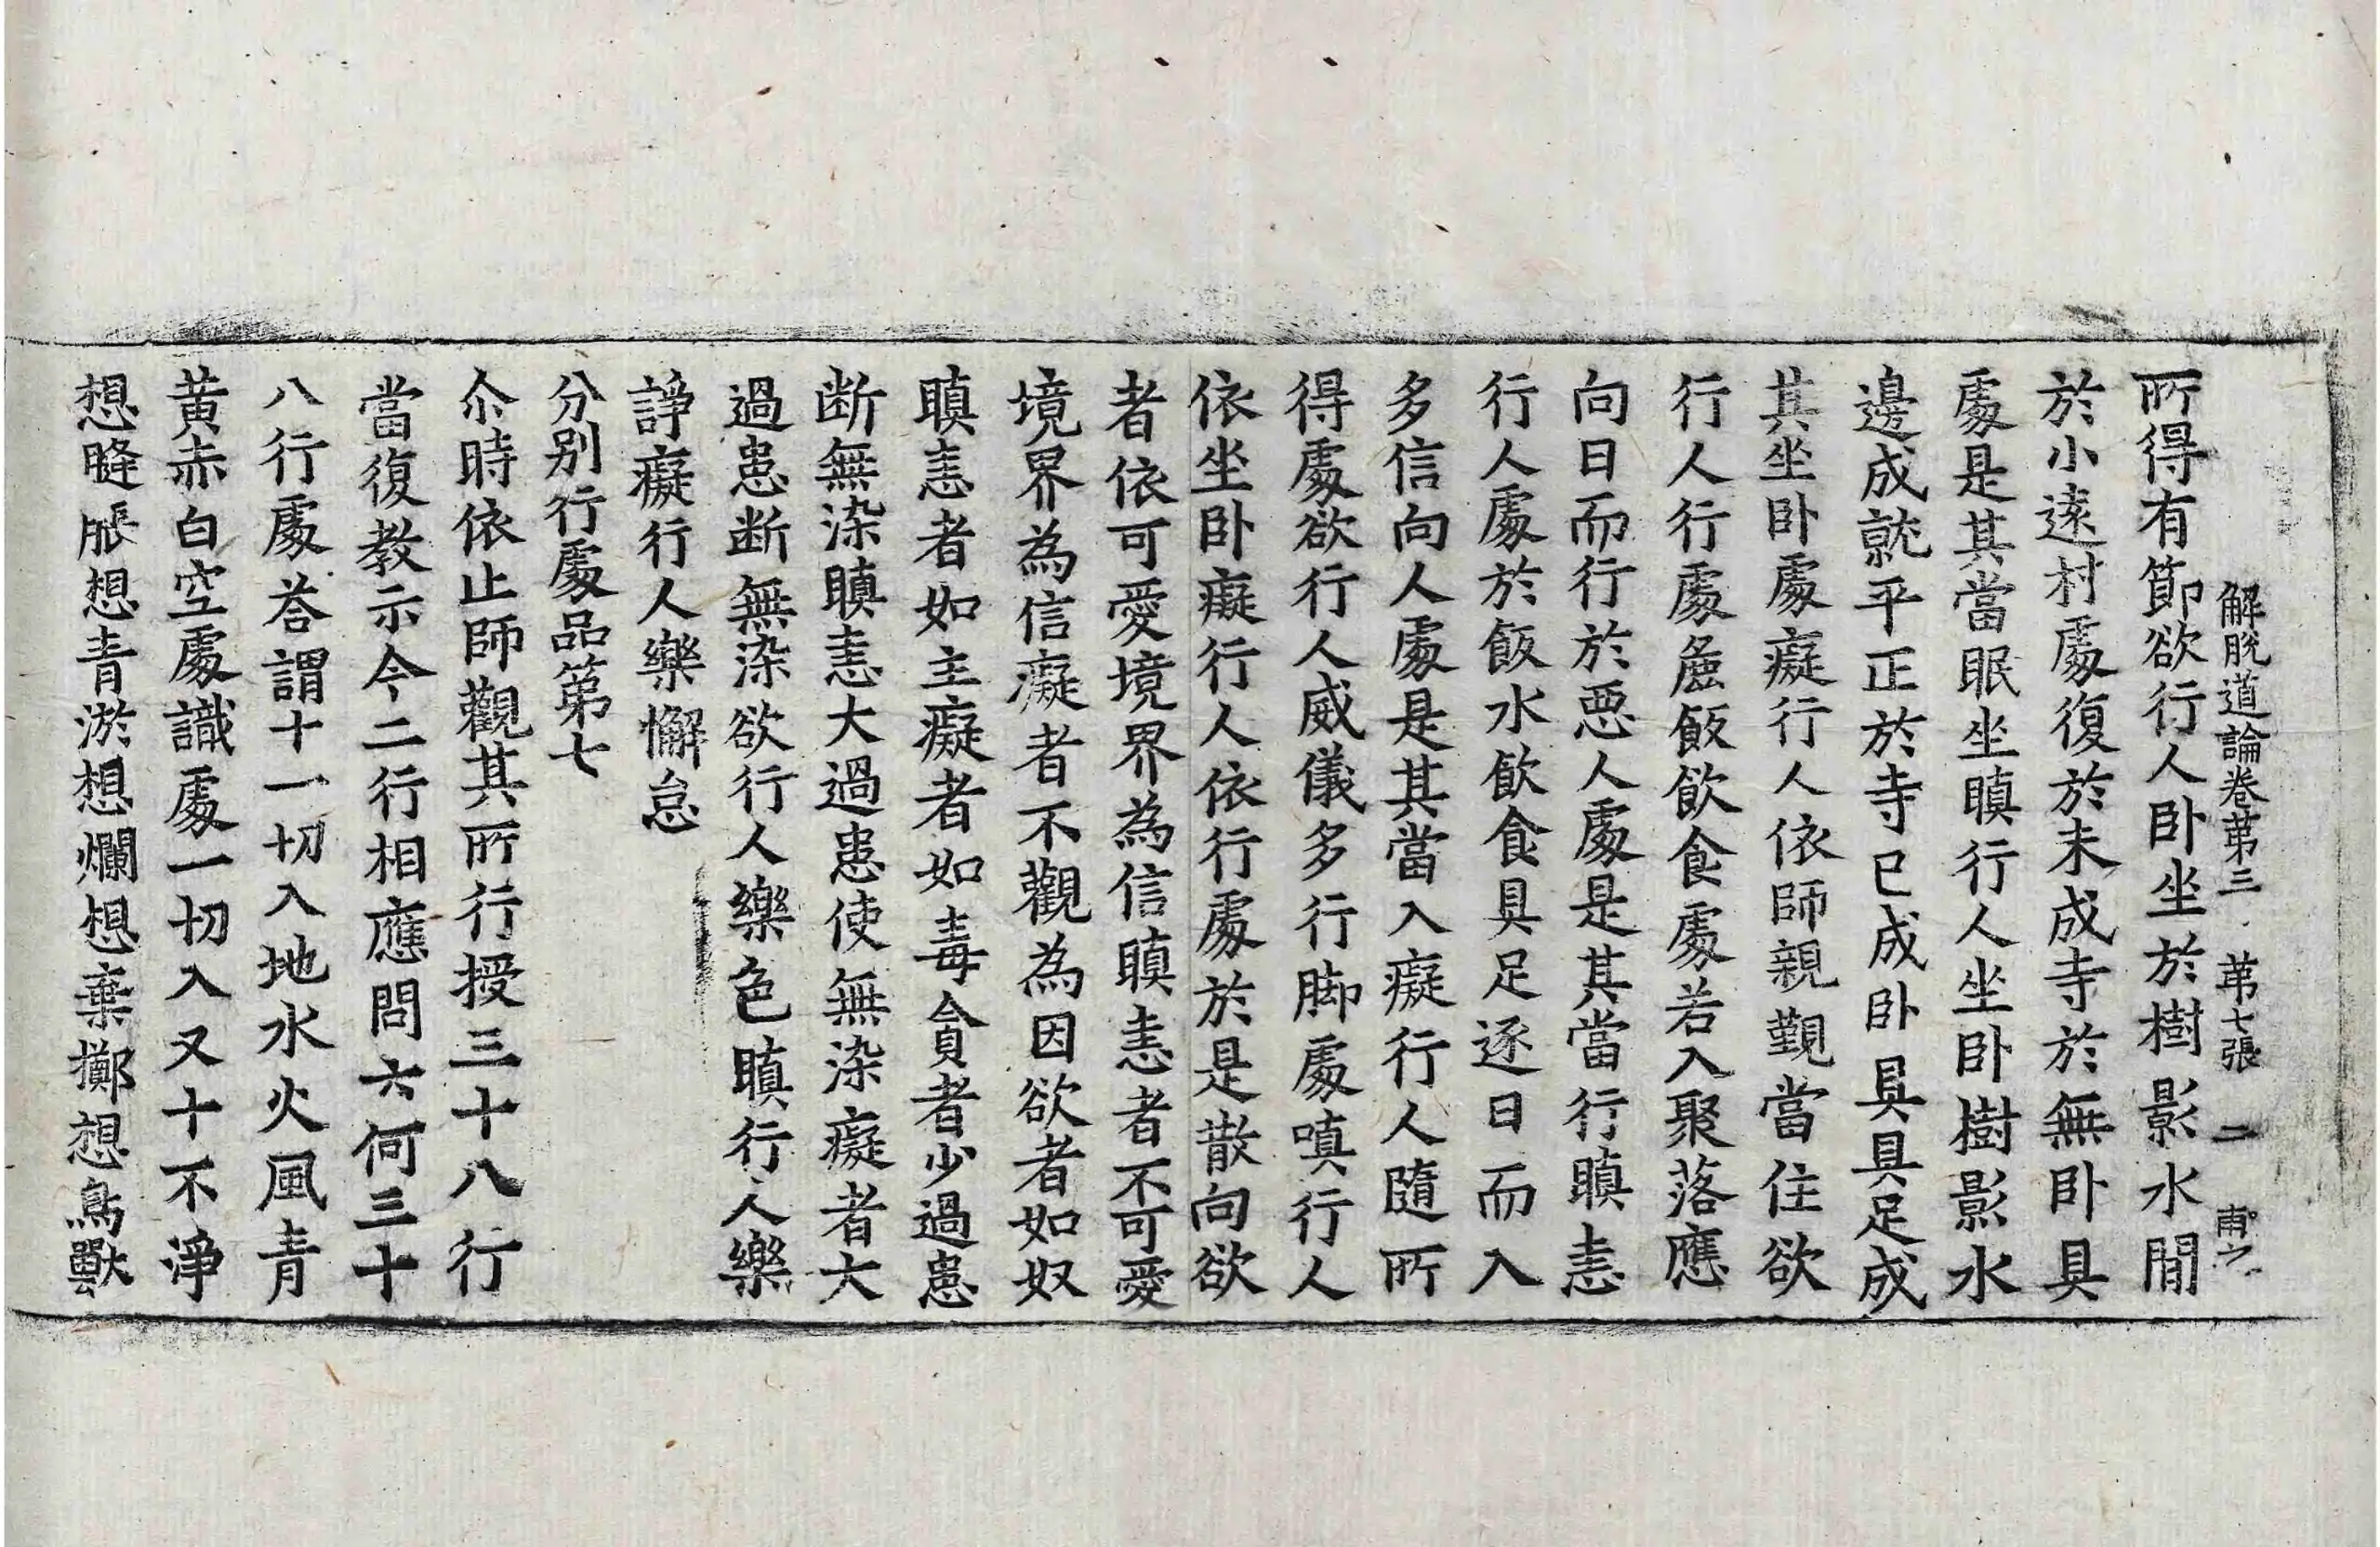 解脫道論卷第三 第七張 二 甫
所得有節欲行人臥坐於樹影水間
於小遠村處復於未成寺於無臥具
處是其當眠坐瞋行人坐臥樹影水
邊成就平正於寺已成臥具具足成
其坐臥處癡行人依師親覲當住欲
行人行處麁飯飲食處若入聚落應
向日而行於惡人處是其當行瞋恚
行人處於飯水飲食具足逐日而入
多信向人處是其當入癡行人隨所
得處欲行人威儀多行脚處嗔行人
依坐臥癡行人依行處於是散向欲
者依可愛境界為信瞋恚者不可愛
境界為信癡者不觀為因欲者如奴
瞋恚者如主癡者如毒貪者少過患
断無染瞋恚大過患使無染癡者大
過患断無染欲行人樂色瞋行人樂
諍癡行人樂懈怠
分別行處品第七
尒時依止師觀其所行授三十八行
當復教示令二行相應問云何三十
八行處荅謂十一切入地水火風青
黃赤白空處識處一切入又十不淨
想膖脹想青淤想爛想棄擲想鳥獸